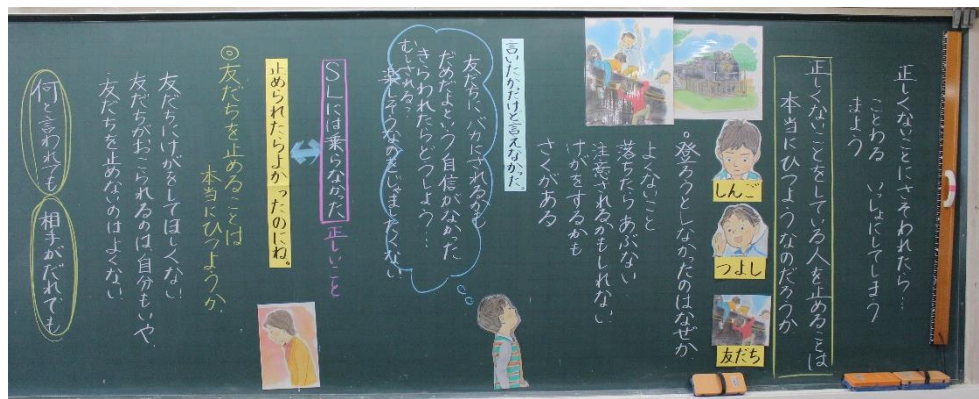 正しくないことにさそわれたら…
ことわる　いっしょにしてしまう
まよう
正しくないことをしている人を止めることは
本当にひつようなのだろうか
しんご
つよし
友だち
○登ろうとしなかったのはなぜか
よくないこと
落ちたらあぶない
注意されるかもしれない
けがをするかも
さくがある
言いたかったけど言えなかった。
友だちに、バカにされるかも
だめだよという自信がなかった
きらわれたらどうしよう…
むしされる？
楽しそうなのをじゃましたくない
SLには乗らなかった 正しいこと
止められたらよかったのにね。
◎友だちを止めることは
本当にひつようか
友だちにけがをしてほしくない
友だちがおこられるのは、自分もいや。
友だちを止めないのはよくない
何と言われても
相手がだれでも